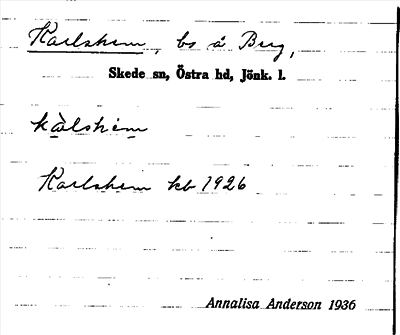 Karlshem, bs å Berg,
Skede sn, Östra hd, Jönk. l.
kàlshem
Karlshem kb 1926
Annalisa Anderson 1936